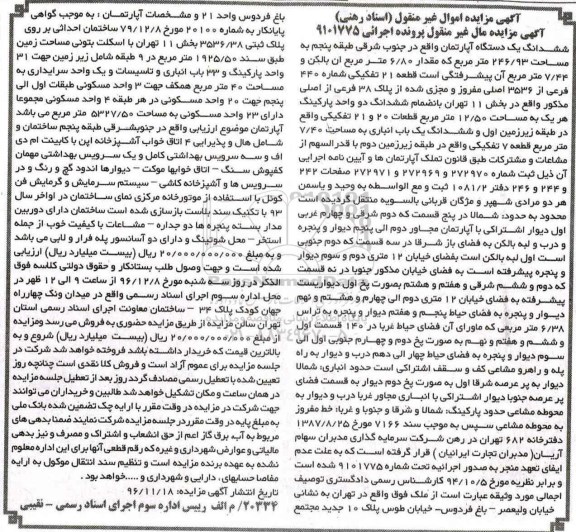 آگهی مزایده اموال غیر منقول (اسناد رهنی)
آگهی مزایده مال غیر منقول پرونده اجرائی ۹۱۰۱۷۷۵
ششدانگ یک دستگاه آپارتمان واقع در جنوب شرقی طبقه پنجم به
مساحت ۲۴۶/۹۳ متر مربع که مقدار ۶/۸۰ متر مربع آن بالکن و
۷/۴۴ متر مربع آن پیشرفتگی است قطعه ۲۱ تفکیکی شماره ۴۴۰
فرعی از ۳۵۳۶ اصلی مفروز و مجزی شده از پلاک ۳۸ فرعی از اصلی
مذکور واقع در بخش ۱۱ تهران بانضمام ششدانگ دو واحد پارکینگ
هر یک به مساحت ۱۲/۵۰ متر مربع قطعات ۲۰ و ۲۱ تفکیکی واقع
در طبقه زیرزمین اول و ششدانگ یک باب انباری به مساحت ۷/۴۰
متر مربع قطعه ۷ تفکیکی واقع در طبقه زیرزمین دوم با قدرالسهم از
مشاعات و مشترکات طبق قانون تملک آپارتمان ها و آیین نامه اجرایی
آن ذیل ثبت شماره ۲۷۲۹۷۰ و ۲۷۲۹۶۹ و ۲۷۲۹۷۱ صفحات ۲۴۲
و ۲۴۴ و ۲۴۶ دفتر ۱۰۸۱/۲ ثبت و مع الواسطه به وحید و یاسمن
هر دو مرادی شهپر و مژگان قربانی بالسویه منتقل گردیده است
محدود به حدود: شمالا در پنج قسمت که دوم شرقی و چهارم غربی
اول دیوار اشتراکی با آپارتمان مجاور دوم الی پنجم دیوار و پنجره
و درب و لبه بالکن به فضای باز شرقا در سه قسمت که دوم جنوبی
است اول لبه بالکن است بفضای خیابان ۱۲ متری دوم و سوم دیوار
و پنجره پیشرفته است به فضای خیابان مذکور جنوبا در نه قسمت
که دوم و ششم شرقی و هفتم و هشتم بصورت پخ اول دیواریست
پیشرفته به فضای خیابان ۱۲ متری دوم الی چهارم و هشتم و نهم
دیوار و پنجره به فضای حیاط پنجم و هفتم دیوار و پنجره به تراس
۶/۳۸ متر مربعی که ماورای آن فضای حیاط غربا در ۱۴ قسمت اول
و ششم و هفتم و نهم به صورت پخ دوم و چهارم جنوبی اول الی
سوم دیوار و پنجره به فضای حیاط چهار الی دهم درب و دیوار به راه
پله و راهرو مشاعی کف و سقف اشتراکی است حدود انباری: شمالا
دیوار به پر عرصه شرقا اول به صورت پخ دوم دیوار به قسمت فضای
پر عرصه جنوبا دیوار اشتراکی با انباری مجاور غربا درب و دیوار به
محوطه مشاعی حدود پارکینگ: شمالا و شرقا و جنوبا و غربا: خط مفروز
به محوطه مشاعی سپس به موجب سند ۷۱۶۶ مورخ ۱۳۸۷/۸/۲۵
دفترخانه ۶۸۲ تهران در رهن شرکت سرمایه گذاری مدیران سهام
آریان( مدبران تجارت ایرانیان ) قرار گرفته است که به علت عدم
ایفای تعهد منجر به صدور اجرائیه تحت شماره ۹۱۰۱۷۷۵ شده است
و برابر نظریه مورخ ۹۴/۱۰/۵ کارشناس رسمی دادگستری توصیف
اجمالی مورد وثیقه عبارت است از ملک فوق واقع در تهران به نشانی
خیابان ولیعصر – باغ فردوس- خیابان طوس پلاک ۱۰ جدید مجتمع
باغ فردوس واحد ۲۱ و مشخصات آپارتمان : به موجب گواهی
پایانکار به شماره ۲۰۱۰۰ مورخ ۷۹/۱۲/۸ ساختمان احداثی بر روی
پلاک ثبتی ۳۵۳۶/۳۸ بخش ۱۱ تهران با اسکلت بتونی مساحت زمین
طبق سند ۱۹۲۵/۵۰ متر مربع در ۹ طبقه شامل زیر زمین جهت ۳۱
واحد پارکینگ و ۲۳ باب انباری و تاسیسات و یک واحد سرایداری به
مساحت ۴۰ متر مربع همکف جهت ۳ واحد مسکونی طبقات اول الی
پنجم جهت ۲۰ واحد مسکونی در هر طبقه ۴ واحد مسکونی مجموعا
دارای ۲۳ واحد مسکونی به مساحت ۵۳۲۷/۵۰ متر مربع می باشد
آپارتمان موضوع ارزیابی واقع در جنوبشرقی طبقه پنجم ساختمان و
شامل هال و پذیرایی ۴ اتاق خواب آشپزخانه اپن با کابینت ام دی
اف و سه سرویس بهداشتی کامل و یک سرویس بهداشتی مهمان
کفپوش سنگ – اتاق خوابها موکت – دیوارها اندود گچ و رنگ و در
سرویس ها و آشپزخانه کاشی – سیستم سرمایش و گرمایش فن
کوئل با استفاده از موتورخانه مرکزی نمای ساختمان در اواخر سال
۹۳ با تکنیک سند بلاست بازسازی شده است ساختمان دارای دوربین
مدار بسته پنجره ها دو جداره – مشاعات با کیفیت خوب از جمله
استخر – محل شوتینگ و دارای دو آسانسور پله فرار و لابی می باشد
و به مبلغ ۲۰/۰۰۰/۰۰۰/۰۰۰ ریال (بیست میلیارد ریال) ارزیابی
شده است و جهت وصول طلب بستانکار و حقوق دولتی کلاسه فوق
الذکر در روز سه شنبه مورخ ۹۶/۱۲/۸ از ساعت ۹ الی ۱۲ ظهر در
محل اداره سوم اجرای اسناد رسمی واقع در میدان ونک چهارراه
جهان کودک پلاک ۳۴ – ساختمان معاونت اجرای اسناد رسمی استان
تهران سالن مزایده از طریق مزایده حضوری به فروش می رسد ومزایده
از مبلغ ۲۰/۰۰۰/۰۰۰/۰۰۰ ریال (بیست میلیارد ریال) شروع و به
بالاترین قیمت که خریدار داشته باشد فروخته خواهد شد شرکت در
جلسه مزایده برای عموم آزاد است و فروش کلا نقدی است چنانچه روز
تعیین شده با تعطیل رسمی مصادف گردد روز بعد از تعطیل جلسه مزایده
در همان ساعت و مکان تشکیل خواهد شد طالبین و خریداران می توانند
جهت شرکت در مزایده در وقت مقرر با ارایه چک تضمین شده بانک ملی
به مبلغ پایه در وقت مقرردر جلسه مزایده شرکت نمایند ضمنا بدهی های
مربوط به آب، برق گاز اعم از حق انشعاب و اشتراک و مصرف و نیز بدهی
مالیاتی و عوارض شهرداری و غیره که رقم قطعی آنها برای این اداره معلوم
نشده به عهده برنده مزایده است و تنظیم سند انتقال موکول به ارایه
مفاصا حسابهای، دارایی و شهرداری و .....خواهد بود .
تاریخ انتشار آگهی مزایده: ۹۶/۱۱/۱۸
۲۰۳۳۴/ م الف رییس اداره سوم اجرای اسناد رسمی – نقیبی